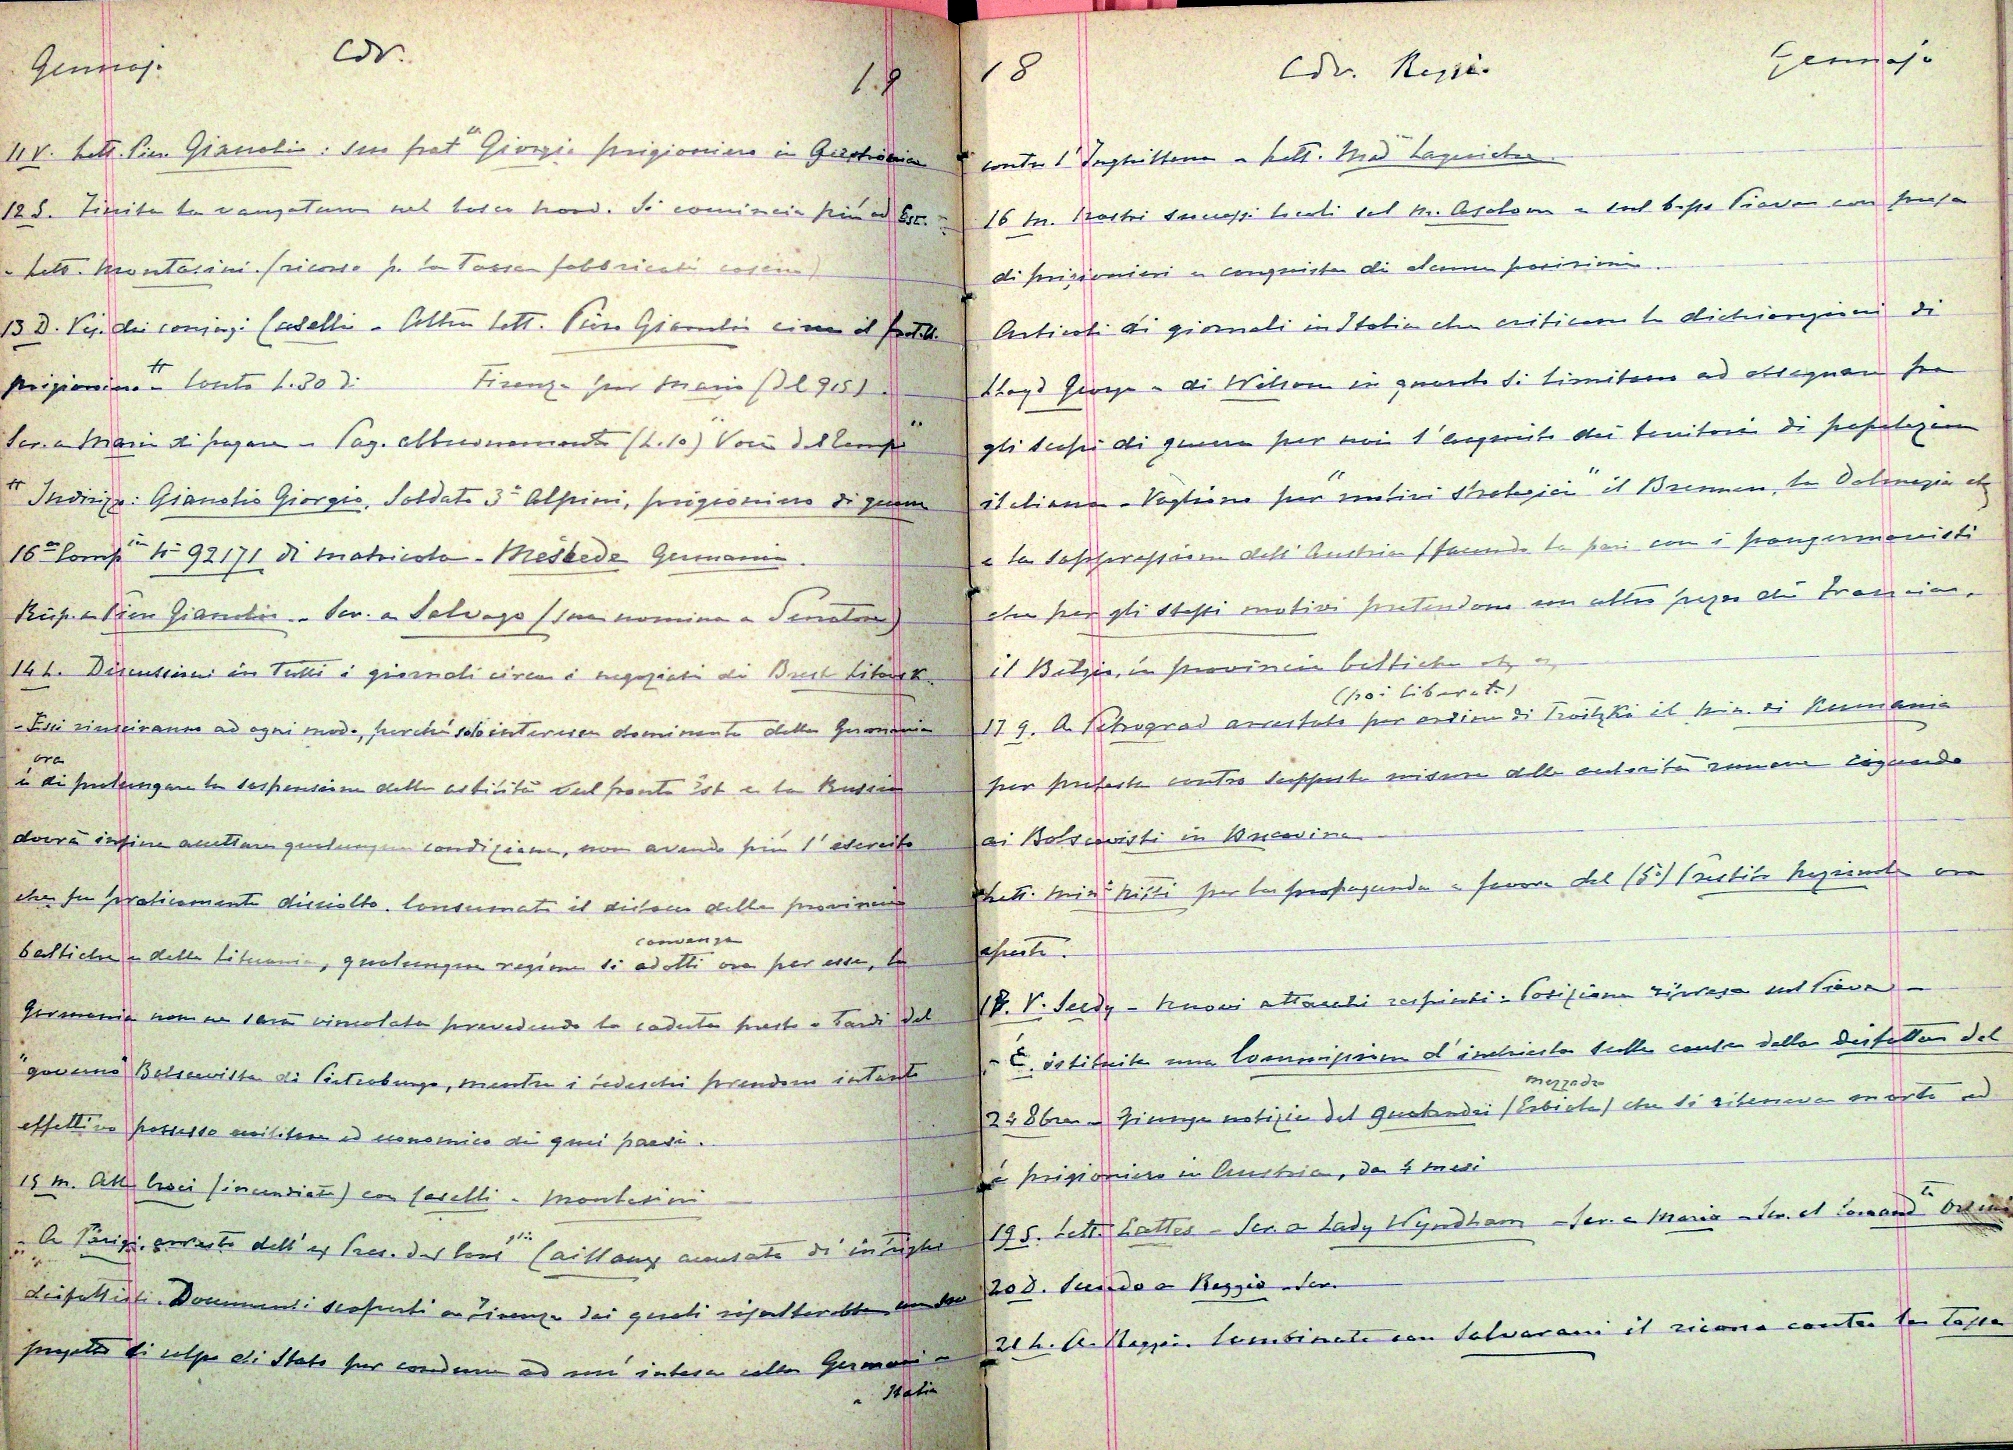 Gennajo Cdv. 19
11 V. Lett. Piero Gianolio: suo frat° Giorgio prigioniero in Germania
12 S. Finita la vangatura nel bosco nord. Si comincia più ad Est. -
- Lett. Montasini. (ricorso p. la Tassa fabbricati cascine)
13 D. Vis. dei conjugi Caselli - Altra lett. Piero Gianolio circa il fratello
prigioniero # - Conto L. 30 di Firenze per Mario (del 915).
Scr. a Mario di pagare - Pag. abbuonamento (L. 10) "Voci del Tempo"
# Indirizzo: Gianolio Giorgio, Soldato 3° Alpini, prigioniero di guerra
16ª Compia N° 92171 di matricola - Meschede Germania.
Risp. a Piero Gianolio - Scr. a Salvago (sua nomina a Senatore)
14 L. Discussioni in Tutti i giornali circa i negoziati di Brest Litowsk.
- Essi riusciranno ad ogni modo, perchè solo interesse dominante della Germania
ora
è di prolungare la sospensione delle ostilità sul fronte Est e la Russia
dovrà infine accettare qualunque condizione, non avendo più l'esercito
che fu praticamente disciolto. Consumato il distacco delle provincie
convenza
baltiche e della Lituania, qualunque regime si adotti ora per esse, la
Germania non ne sarà vincolata prevedendo la caduta presto o tardi del
"governo" Bolscevista di Pietroburgo, mentre i tedeschi prendono intanto
effettivo possesso militare ed economico di quei paesi.
15 M. Alle Croci (incendiate) con Caselli - Montasini
- A Parigi arresto dell'ex Pres. del Consiglio Caillaux accusato di intrighi
disfattisti. Documenti scoperti a Firenze dai quali risulterebbe un suo
progetto di colpo di Stato per condurre ad un'intesa colla Germania -
e Italia
18 Cdv. Reggio Gennajo
contro l'Inghilterra - Lett. Mad
16 M. Nostri successi locali sul M. Asolone e sul basso Piave con presa
di prigionieri e conquista di alcune posizioni.
Articoli di giornali in Italia che criticano le dichiarazioni di
Lloyd George e di Wilson in quanto si limitano ad assegnare fra
gli scopi di guerra per noi l'acquisto dei territori di popolazione
italiana - Vogliono per "motivi strategici" il Brennero, la Dalmazia etc
e la soppressione dell'Austria (facendo la pari con i pangermanisti
che per gli stessi motivi pretendono un altro pezzo di Francia,
il Belgio, le provincie baltiche etc etc
(poi liberato)
17 G. A Petrograd arrestato per ordine di Troitzki il Min. di Rumania
per protesta contro supposte misure delle autorità rumene riguardo
ai Bolscevisti in Bucovina
Lett. Minro Nitti per la propaganda a favore del (5°) Prestito Nazionale ora
aperto.
18 V. Seedy - Nuovi attacchi respinti - Posizione ripresa sul Piave -
- È istituita una Commissione d'inchiesta sulle cause della Disfatta del
mezzadro
24 8bre - Giunge notizia del Guatandri che si riteneva morto ed
è prigioniero in Austria, da 4 mesi
19 S. Lett. Lattes - Scr. a Lady Wyndham - Scr. a Maria - Scr. al Comandte Orsini
20 D. Scendo a Reggio - Scr.
21 L. A Reggio. Combinato con Salvarani il ricorso contro la Tassa